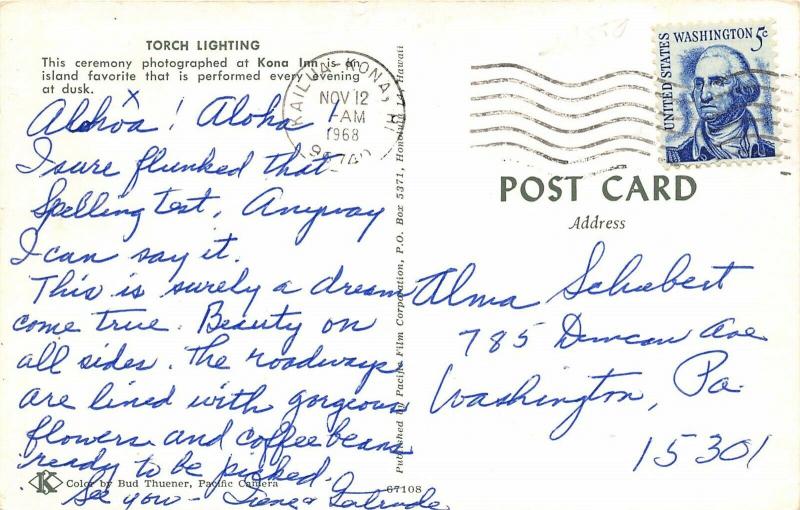 TORCH LIGHTING
This ceremony photographed at Kona Inn is an
island favorite that is performed every evening
at dusk.
Alohoa! Aloha!
I sure flunked that
Spelling test, Anyway
I can say it.
This is surely a dream
come true. Beauty on
all sides. The roadways
are lined with gorgeous
flowers and coffee beans
ready to be picked.
See you - Irene & Gertrude
Color by Bud Thuener, Pacific Camera
K
67108
Published by Pacific Film Corporation, P.O. Box 5371, Honolulu, Hawaii
KAILUA-KONA, HI
NOV 12
AM
1968
96740
UNITED STATES
WASHINGTON 5c
POST CARD
Address
Alma Schubert
785 Duncan Ave
Washington, Pa.
15301